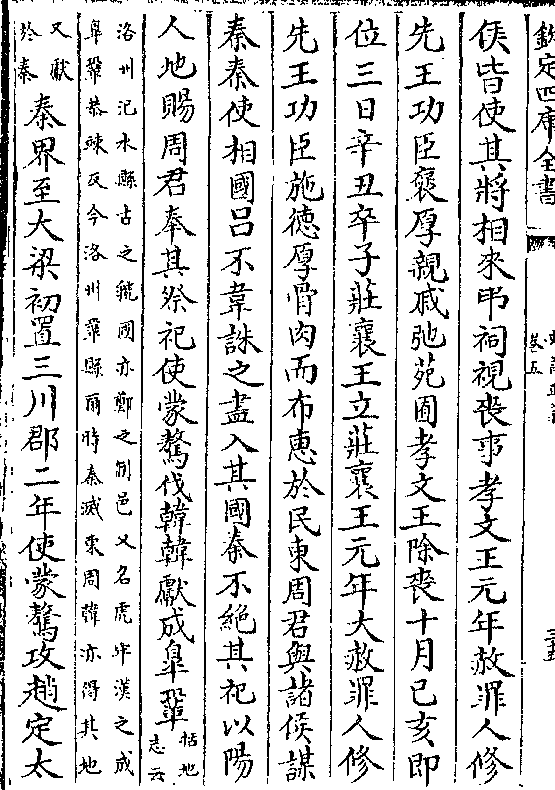 欽定四庫全書
卷五
侯皆使其將相來弔祠視喪事孝文王元年赦罪人修
先王功臣襃厚親戚弛苑囿孝文王除喪十月己亥即
位三日辛丑卒子莊襄王立莊襄王元年大赦罪人修
先王功臣施德厚骨肉而布惠於民東周君與諸侯謀
秦秦使相國呂不韋誅之盡入其國秦不絕其祀以陽
人地賜周君奉其祭祀使蒙驁伐韓韓獻成臯鞏
括地
志云
洛州汜水縣古之虢國亦鄭之制邑又名虎牢漢之成
臯鞏恭竦反今洛州鞏縣爾時秦滅東周韓亦得其地
又獻
於秦
秦界至大梁初置三川郡二年使蒙驁攻趙定太